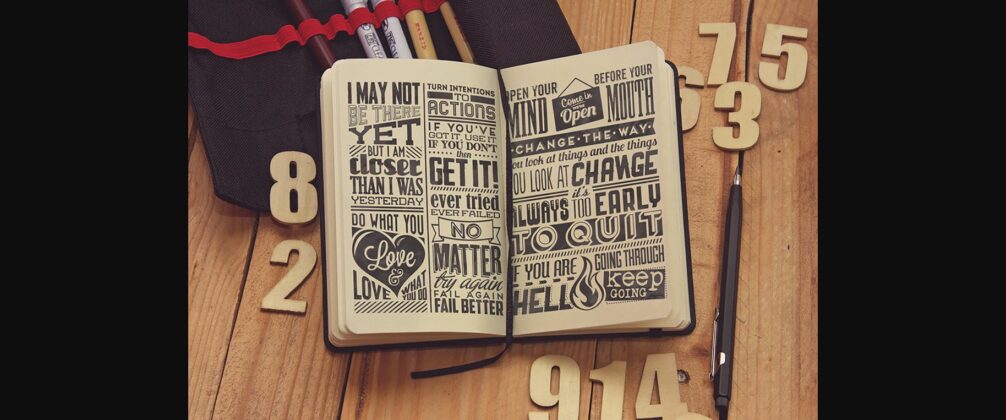 I MAY NOT
BE THERE
YET
BUT I AM
closer
THAN I WAS
YESTERDAY
DO WHAT YOU
Love
&
LOVE WHAT
YOU DO
TURN INTENTIONS
TO
ACTIONS
IF YOU'VE
GOT IT, USE IT
IF YOU DON'T
then
GET IT!
ever tried
EVER FAILED
NO
MATTER
try again
FAIL AGAIN
FAIL BETTER
OPEN YOUR
MIND
Come in
Open
BEFORE YOUR
MOUTH
CHANGE·THE·WAY
you look at things and the things
YOU LOOK AT CHANGE
it's
ALWAYS TOO EARLY
TO QUIT
IF YOU ARE GOING THROUGH
HELL keep
GOING
8
2
7
5
3
6
9
1
4